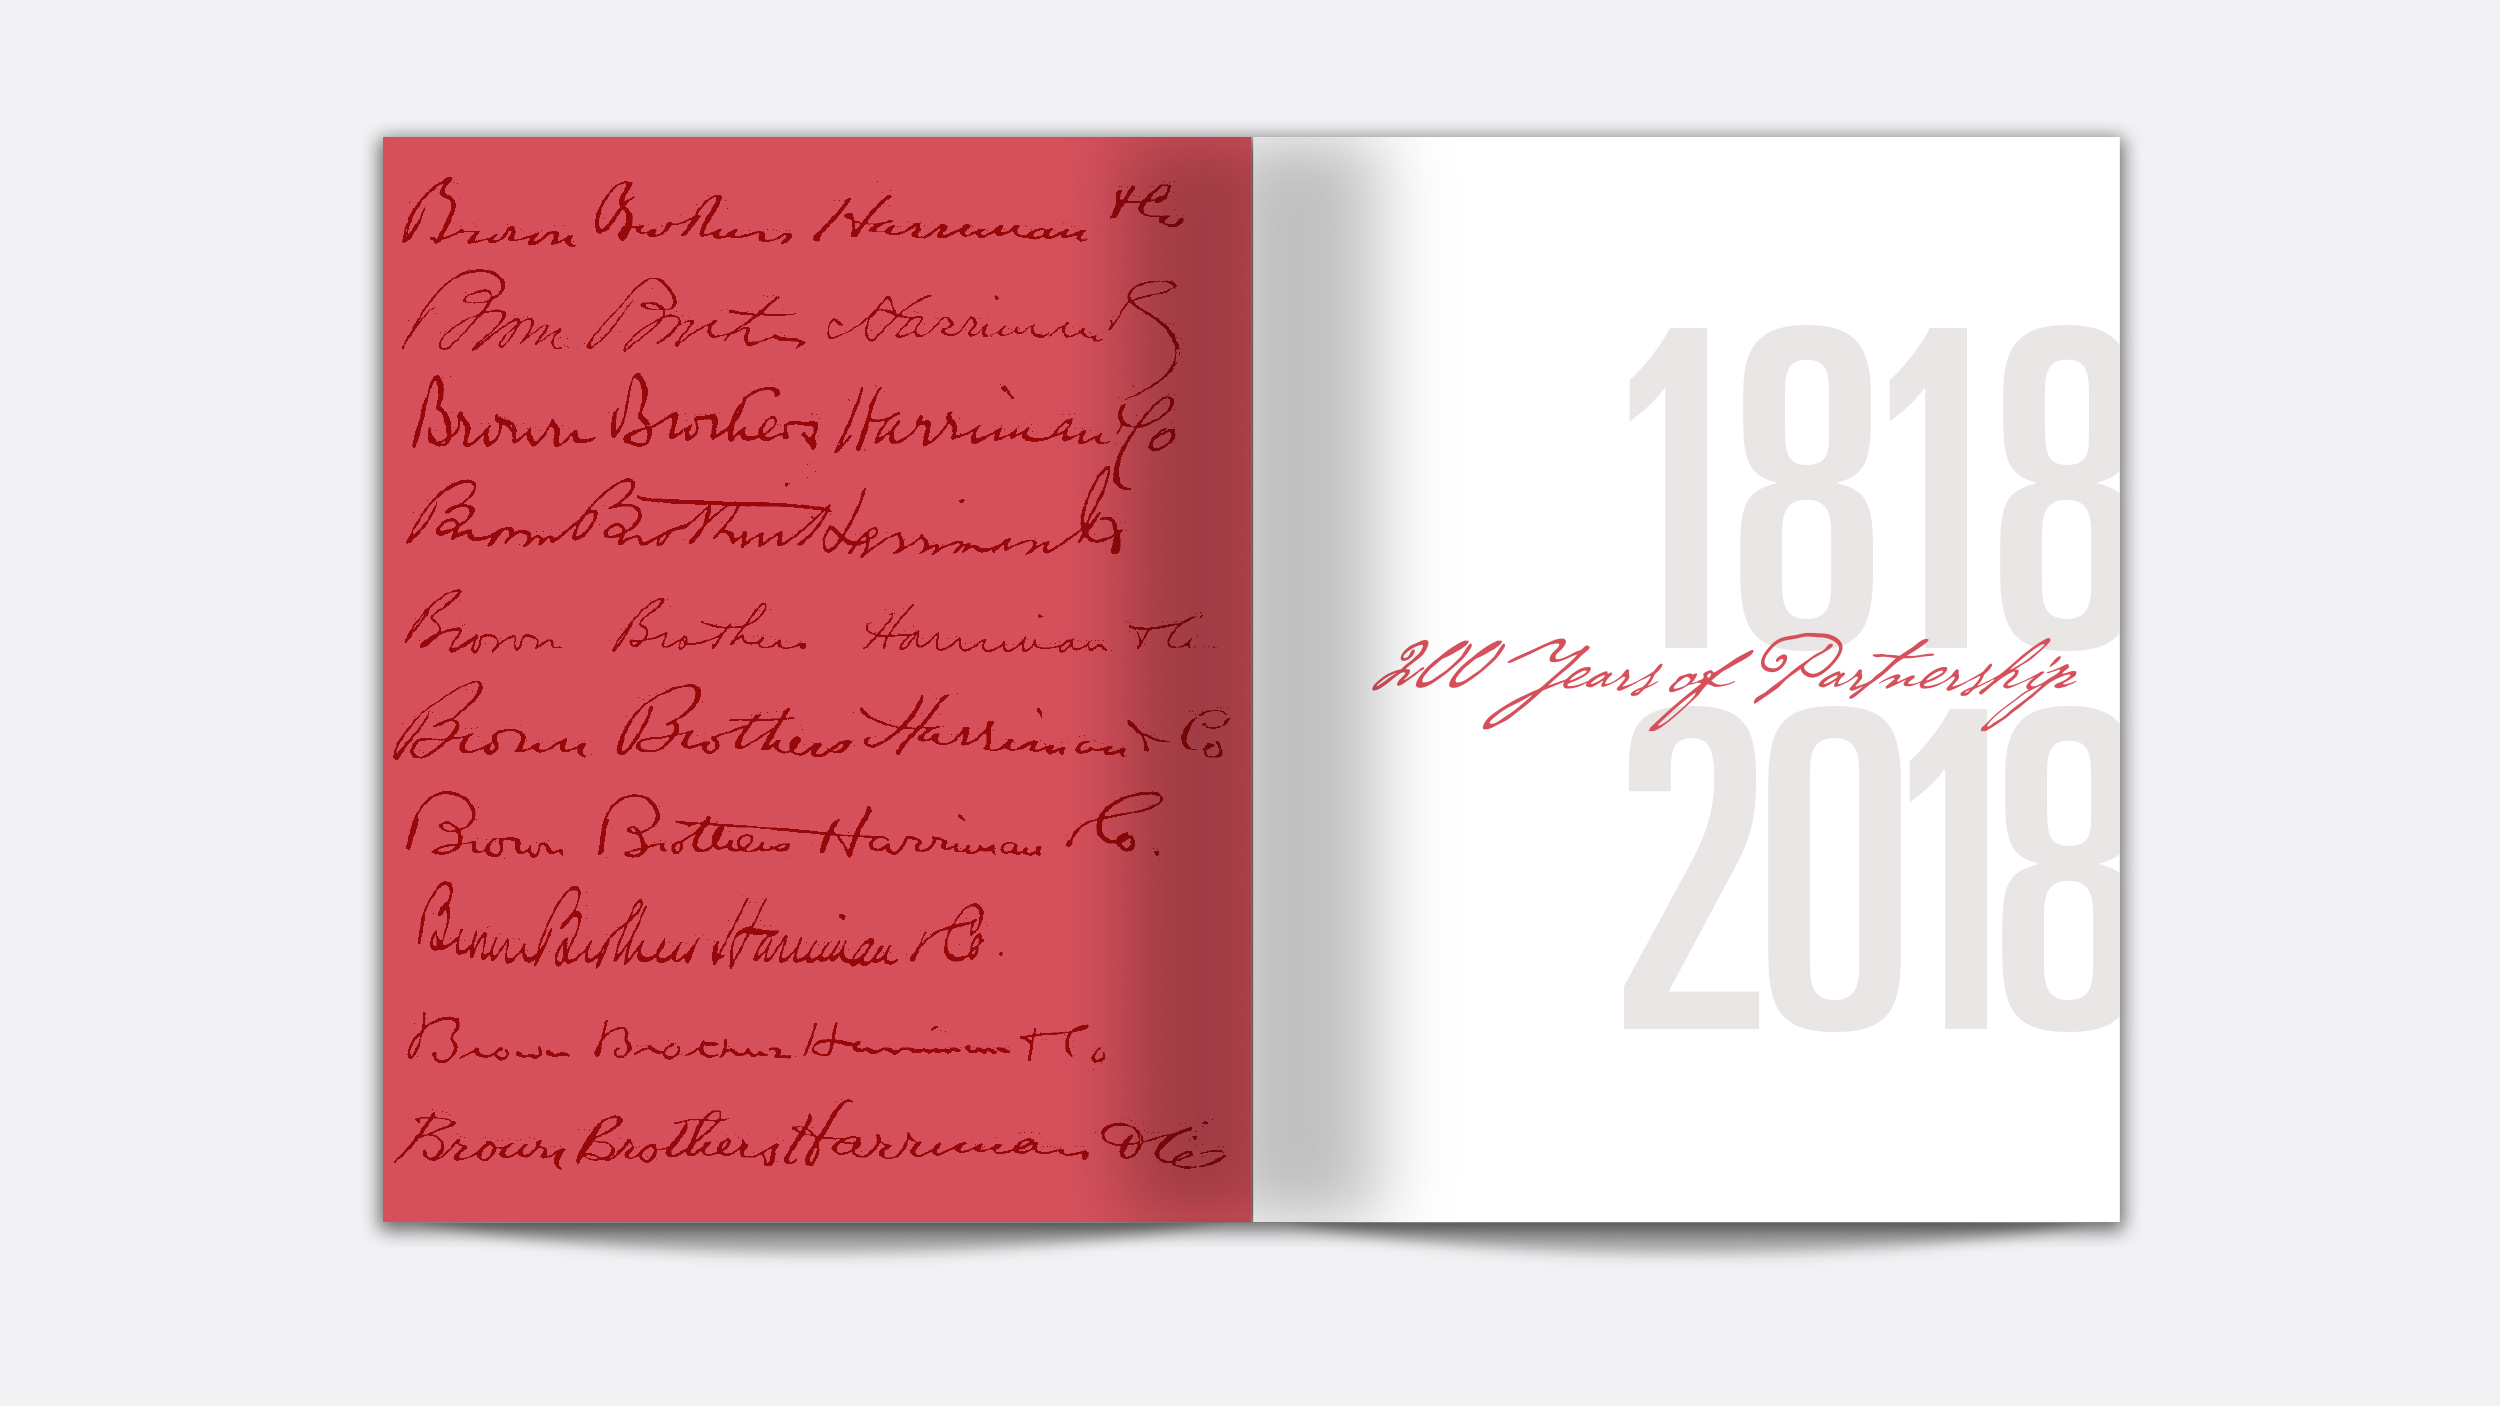 Brown Brothers Harriman & Co
Brown Brothers Harriman &
Brown Brothers Harriman & Co
Brown Brothers Harriman & Co
Brown Brothers Harriman & Co
Brown Brothers Harriman & Co
Brown Brothers Harriman & Co.
Brown Brothers Harriman & Co.
Brown Brothers Harriman & Co
Brown Brothers Harriman & Co
1818
200 Years of Partnership
2018